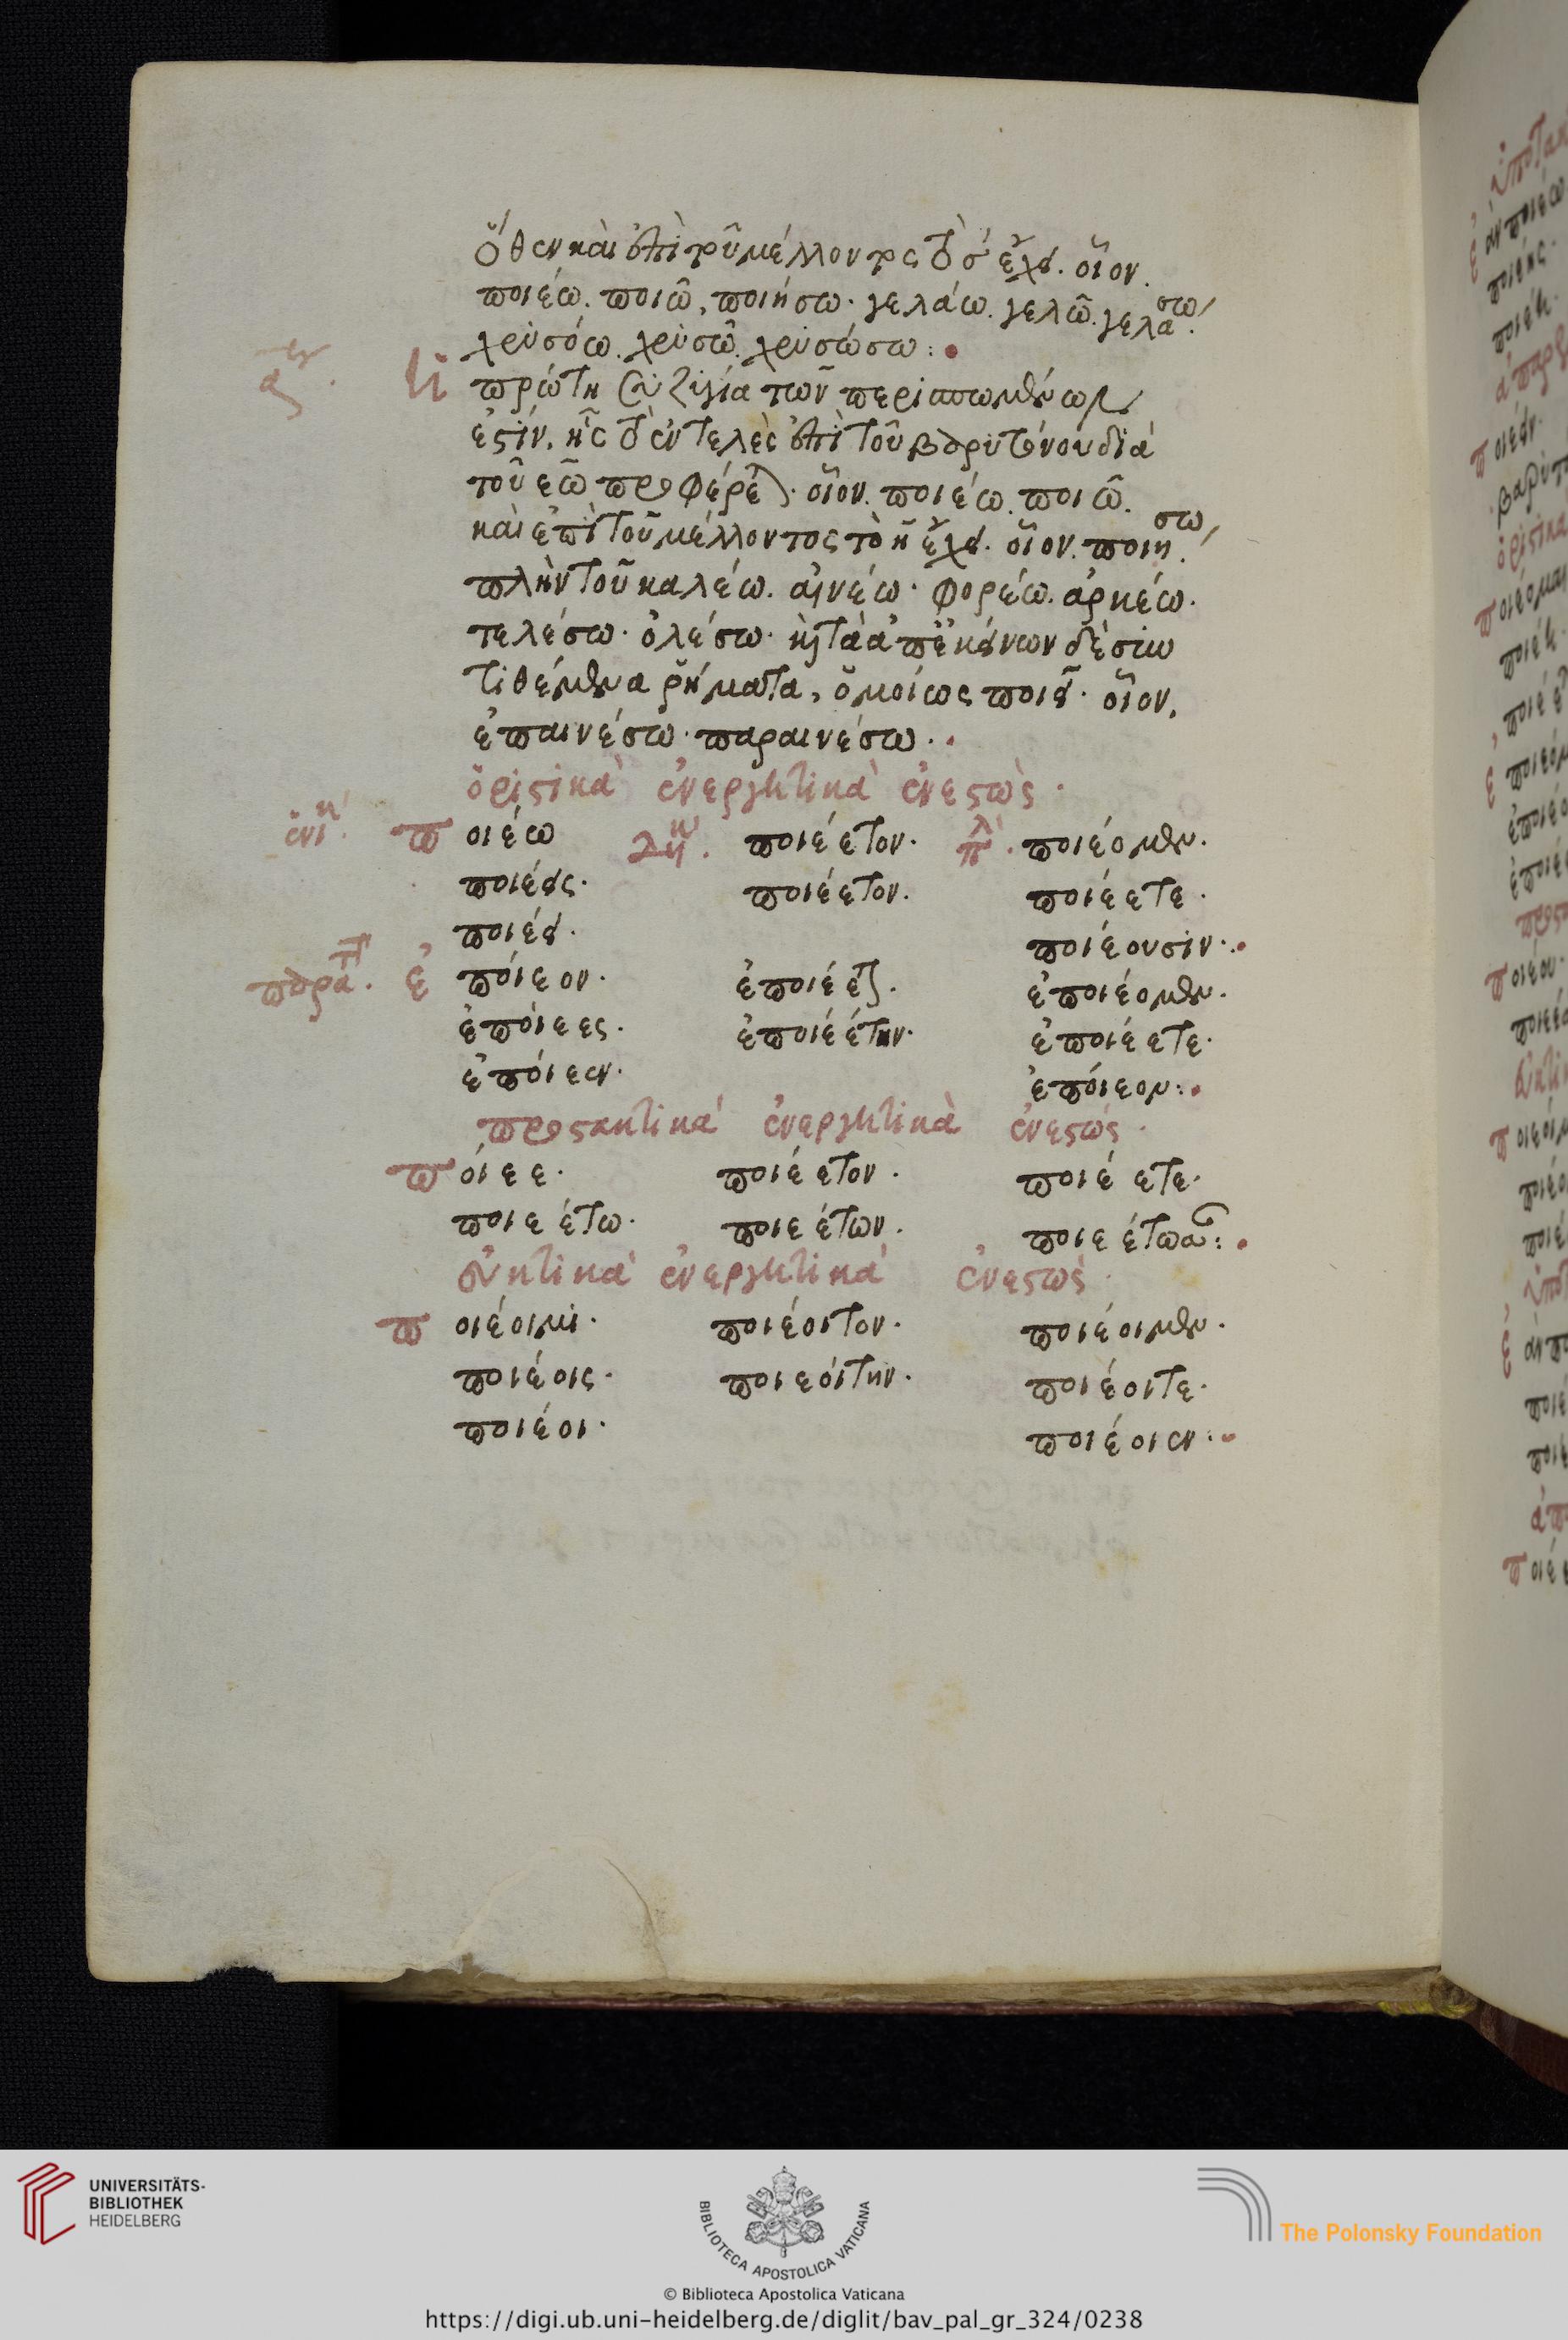 ὅθεν καὶ ἐπὶ τοῦ μέλλοντος τὸ σ ἔχει. οἷον.
ποιέω. ποιῶ, ποιήσω. γελάω. γελῶ. γελάσω.
χρυσόω. χρυσῶ. χρυσώσω:
πρώτη συζυγία τῶν περισπωμένων
ἐστίν. ἧς τὸ ἐντελὲς ἐπὶ τοῦ βαρυτόνου διὰ
τοῦ εω προφέρεται. οἷον. ποιέω. ποιῶ.
καὶ ἐπὶ τοῦ μέλλοντος τὸ η ἔχει. οἷον. ποιήσω.
πλὴν τοῦ καλέω. αἰνέω. φορέω. ἀρκέω.
τελέσω. ὀλέσω. καὶ τὰ ἀπ' ἐκείνων
τιθέμενα ῥήματα, ὁμοίως ποιεῖ. οἷον,
ἐπαινέσω. παραινέσω.
ὁριστικὰ ἐνεργητικὰ ἐνεστώς.
ποιέω ποιέετον. ποιέομεν.
ποιέεις. ποιέετον. ποιέετε.
ποιέει. ποιέουσιν.
παρατ. ἐπόιεον. ἐποιέετον. ἐποιέομεν.
ἐπόιεες. ἐποιεέτην. ἐποιέετε.
ἐπόιεεν. ἐπόιεον:
προστακτικὰ ἐνεργητικὰ ἐνεστώς.
πόιεε. ποιέετον. ποιέετε.
ποιεέτω. ποιεέτων. ποιεέτωσαν:
εὐκτικὰ ἐνεργητικὰ ἐνεστώς.
ποιέοιμι. ποιέοιτον. ποιέοιμεν.
ποιέοις. ποιεοίτην. ποιέοιτε.
ποιέοι. ποιέοιεν:
UNIVERSITÄTS-
BIBLIOTHEK
HEIDELBERG
BIBLIOTECA APOSTOLICA VATICANA
The Polonsky Foundation
© Biblioteca Apostolica Vaticana
https://digi.ub.uni-heidelberg.de/diglit/bav_pal_gr_324/0238